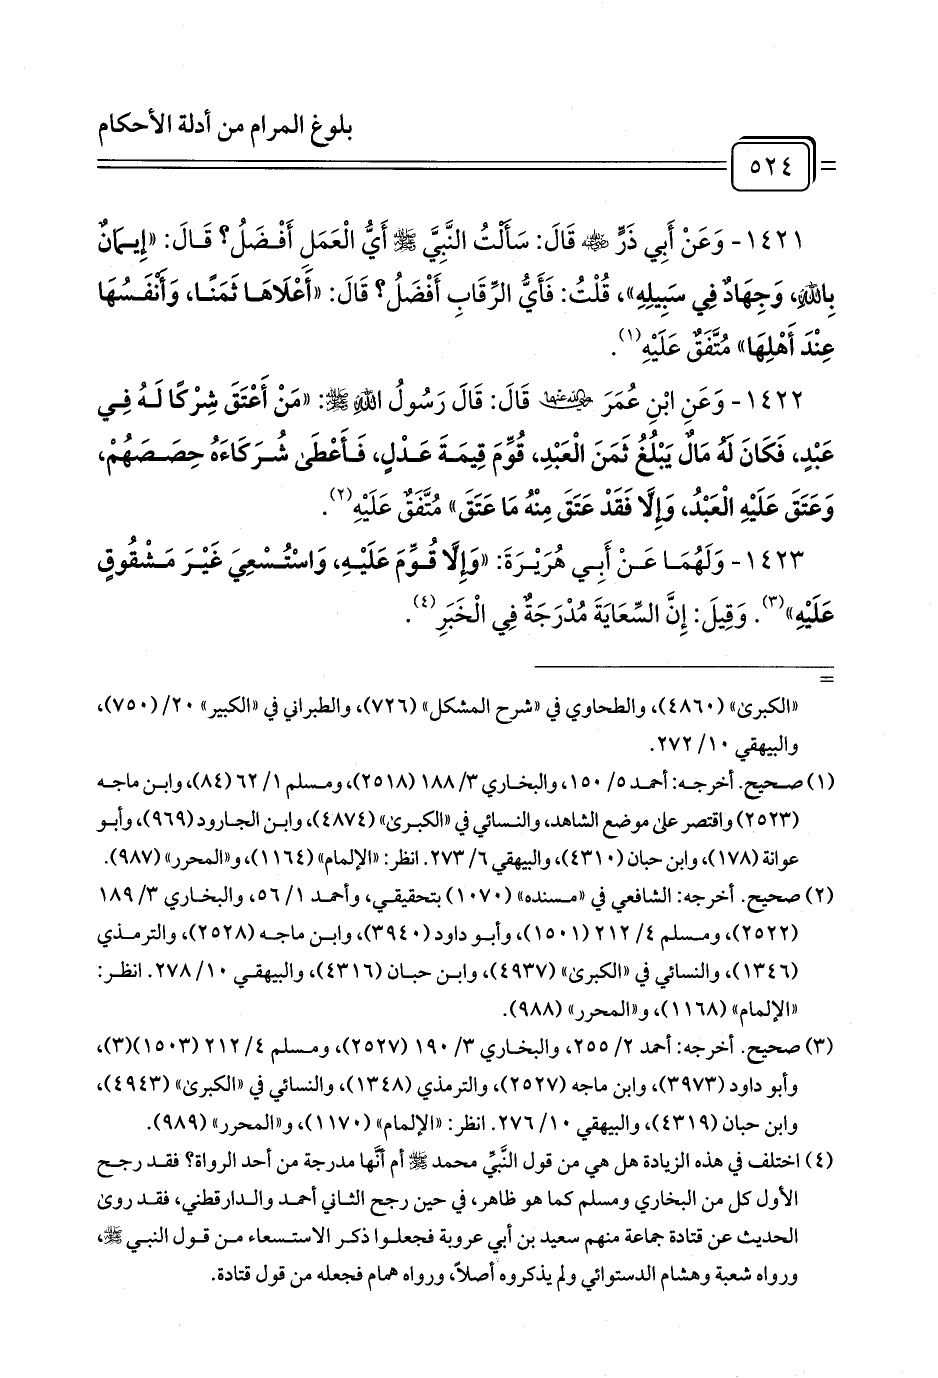 بلوغ المرام من أدلة الأحكام
٥٢٤
١٤٢١- وَعَنْ أَبِي ذَرٍّ ﷺ قَالَ: سَأَلْتُ النَّبِيَّ ﷺ أَيُّ الْعَمَلِ أَفْضَلُ؟ قَالَ: «إِيمَانٌ
بِاللهِ، وَجِهَادٌ فِي سَبِيلِهِ»، قُلْتُ: فَأَيُّ الرِّقَابِ أَفْضَلُ؟ قَالَ: «أَعْلَاهَا ثَمَنًا، وَأَنْفَسُهَا
عِنْدَ أَهْلِهَا» مُتَّفَقٌ عَلَيْهِ(١).
١٤٢٢- وَعَنِ ابْنِ عُمَرَ رضي الله عنهما قَالَ: قَالَ رَسُولُ اللهِ ﷺ: «مَنْ أَعْتَقَ شِرْكًا لَهُ فِي
عَبْدٍ، فَكَانَ لَهُ مَالٌ يَبْلُغُ ثَمَنَ الْعَبْدِ، قُوِّمَ قِيمَةَ عَدْلٍ، فَأَعْطَى شُرَكَاءَهُ حِصَصَهُمْ،
وَعَتَقَ عَلَيْهِ الْعَبْدُ، وَإِلَّا فَقَدْ عَتَقَ مِنْهُ مَا عَتَقَ» مُتَّفَقٌ عَلَيْهِ(٢).
١٤٢٣- وَلَهُمَا عَنْ أَبِي هُرَيْرَةَ: «وَإِلَّا قُوِّمَ عَلَيْهِ، وَاسْتُسْعِيَ غَيْرَ مَشْقُوقٍ
عَلَيْهِ»(٣). وَقِيلَ: إِنَّ السِّعَايَةَ مُدْرَجَةٌ فِي الْخَبَرِ(٤).
=
«الكبرىٰ» (٤٨٦٠)، والطحاوي في «شرح المشكل» (٧٢٦)، والطبراني في «الكبير» ٢٠/ (٧٥٠)،
والبيهقي ١٠/ ٢٧٢.
(١) صحيح. أخرجه: أحمد ٥/ ١٥٠، والبخاري ٣/ ١٨٨ (٢٥١٨)، ومسلم ١/ ٦٢ (٨٤)، وابن ماجه
(٢٥٢٣) واقتصر علىٰ موضع الشاهد، والنسائي في «الكبرىٰ» (٤٨٧٤)، وابن الجارود (٩٦٩)، وأبو
عوانة (١٧٨)، وابن حبان (٤٣١٠)، والبيهقي ٦/ ٢٧٣. انظر: «الإلمام» (١١٦٤)، و«المحرر» (٩٨٧).
(٢) صحيح. أخرجه: الشافعي في «مسنده» (١٠٧٠) بتحقيقي، وأحمد ١/ ٥٦، والبخاري ٣/ ١٨٩
(٢٥٢٢)، ومسلم ٤/ ٢١٢ (١٥٠١)، وأبو داود (٣٩٤٠)، وابن ماجه (٢٥٢٨)، والترمذي
(١٣٤٦)، والنسائي في «الكبرىٰ» (٤٩٣٧)، وابن حبان (٤٣١٦)، والبيهقي ١٠/ ٢٧٨. انظر:
«الإلمام» (١١٦٨)، و«المحرر» (٩٨٨).
(٣) صحيح. أخرجه: أحمد ٢/ ٢٥٥، والبخاري ٣/ ١٩٠ (٢٥٢٧)، ومسلم ٤/ ٢١٢ (١٥٠٣)(٣)،
وأبو داود (٣٩٧٣)، وابن ماجه (٢٥٢٧)، والترمذي (١٣٤٨)، والنسائي في «الكبرىٰ» (٤٩٤٣)،
وابن حبان (٤٣١٩)، والبيهقي ١٠/ ٢٧٦. انظر: «الإلمام» (١١٧٠)، و«المحرر» (٩٨٩).
(٤) اختلف في هذه الزيادة هل هي من قول النَّبيِّ محمد ﷺ أم أنَّها مدرجة من أحد الرواة؟ فقد رجح
الأول كل من البخاري ومسلم كما هو ظاهر، في حين رجح الثاني أحمد والدارقطني، فقد روىٰ
الحديث عن قتادة جماعة منهم سعيد بن أبي عروبة فجعلوا ذكر الاستسعاء من قول النبي ﷺ،
ورواه شعبة وهشام الدستوائي ولم يذكروه أصلاً، ورواه همام فجعله من قول قتادة.